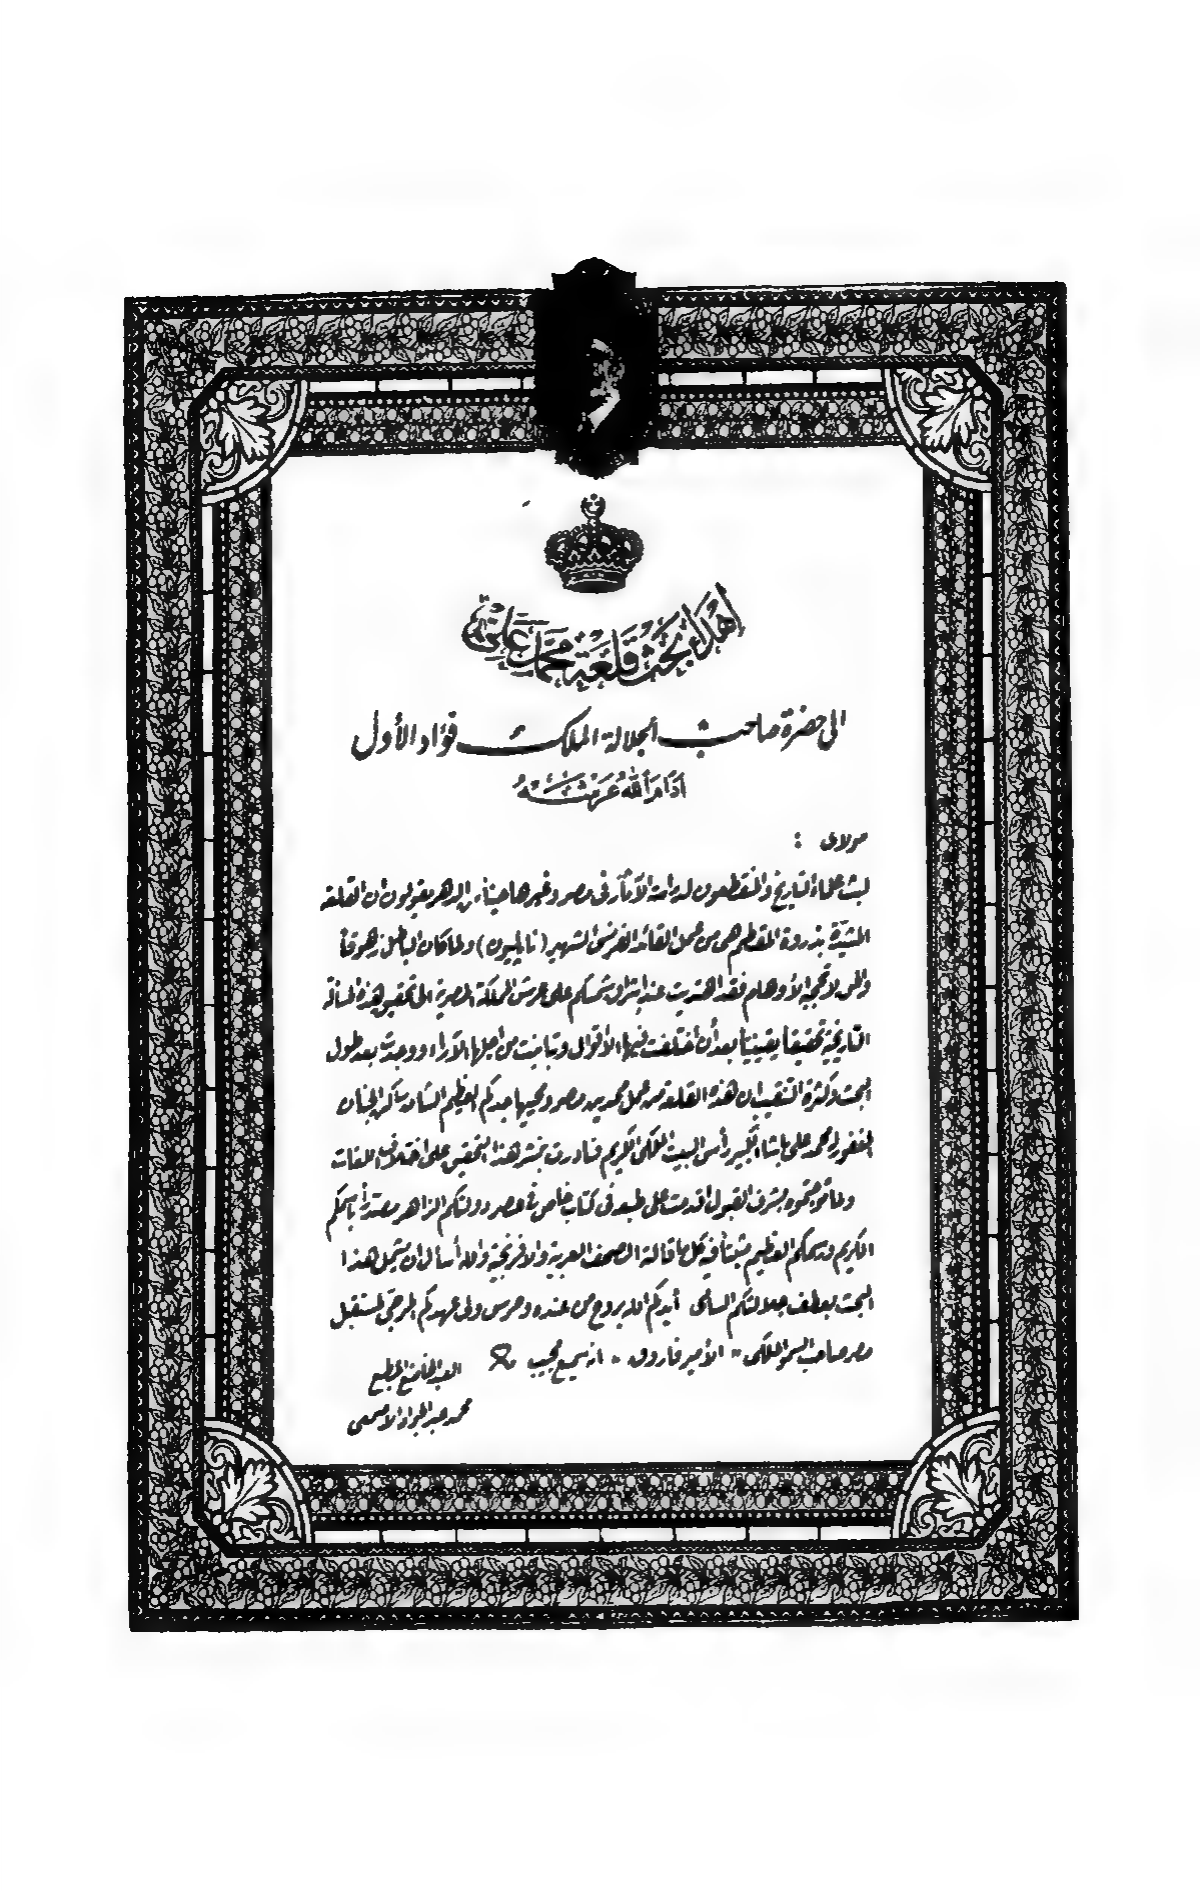 إهداء بحث قلعة محمد علي
الى حضرة صاحب الجلالة الملك فؤاد الأول
أدام الله عرشه
مولاى :
لبث علماء التاريخ والمنقطعون لدراسة الآثار فى مصر وغيرها حينا من الدهر يقولون ان القلعة
المشيدة بذروة المقطم هى من عمل القائد الفرنسى الشهير (نابليون) ولما كان الباطل زهوقا
والحق لا تحجبه الأوهام فقد اهتديت عند اشراق شمسكم على عرش المملكة المصرية الى تحقيق هذه المسألة
التاريخية تحقيقا يقينيا بعد أن اختلفت فيها الأقوال وتباينت من أجلها الآراء ووجدت بعد طول
البحث وكثرة التنقيب ان هذه القلعة من عمل مجدد مصر ومحييها جدكم العظيم الشأن ساكن الجنان
المغفور له محمد على باشا الكبير رأس البيت الملكى الكريم فبادرت بنشر هذا التحقيق على اختلاف اللغات
ولما توجتموه بشرف القبول اقدمت على طبعه فى كتاب خاص فى عصر دولتكم الزاهر مصدرا باسمكم
الكريم ورسمكم العظيم مثبتا فيه كل ما قالته الصحف العربية والافرنجية والله أسأل ان يشمل هذا
البحث بعطف جلالتكم السامى أيدكم الله بروح من عنده وحرس ولى عهدكم المرجى لمستقبل
مصر صاحب السمو الملكى " الأمير فاروق " انه سميع مجيب
العبد الخاضع المطيع
محمد عبد الجواد الأصمعى